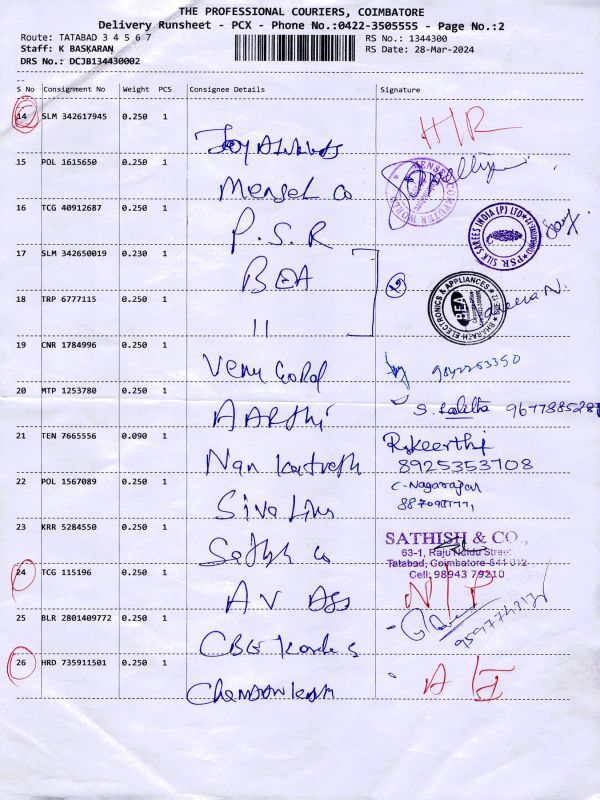 THE PROFESSIONAL COURIERS, COIMBATORE
Delivery Runsheet - PCX - Phone No.:0422-3505555 - Page No.:2
Route: TATABAD 3 4 5 6 7
Staff: K BASKARAN
DRS No.: DCJB134430002
RS No.: 1344300
RS Date: 28-Mar-2024
S No Consignment No Weight PCS Consignee Details Signature
14 SLM 342617945 0.250 1 H/R
15 POL 1615650 0.250 1
Mensel Co
16 TCG 40912687 0.250 1
P.S.R
PSR SILK SAREES INDIA (P) LTD
17 SLM 342650019 0.230 1
BEA
18 TRP 6777115 0.250 1
11
BHARATH ELECTRONICS & APPLIANCES
BEA
19 CNR 1784996 0.250 1
Venu Gopal
20 MTP 1253780 0.250 1
AARthi S. Lalitha
21 TEN 7665556 0.090 1
R.Keerthi
8925353708
22 POL 1567089 0.250 1
Siva C. Nagarajan
23 KRR 5284550 0.250 1
Sathish Co
SATHISH & CO.,
63-1, Raju Naidu Street
Tatabad, Coimbatore-641 012
Cell: 98943 79210
24 TCG 115196 0.250 1
A V Ass N/P
25 BLR 2801409772 0.250 1
26 HRD 735911501 0.250 1